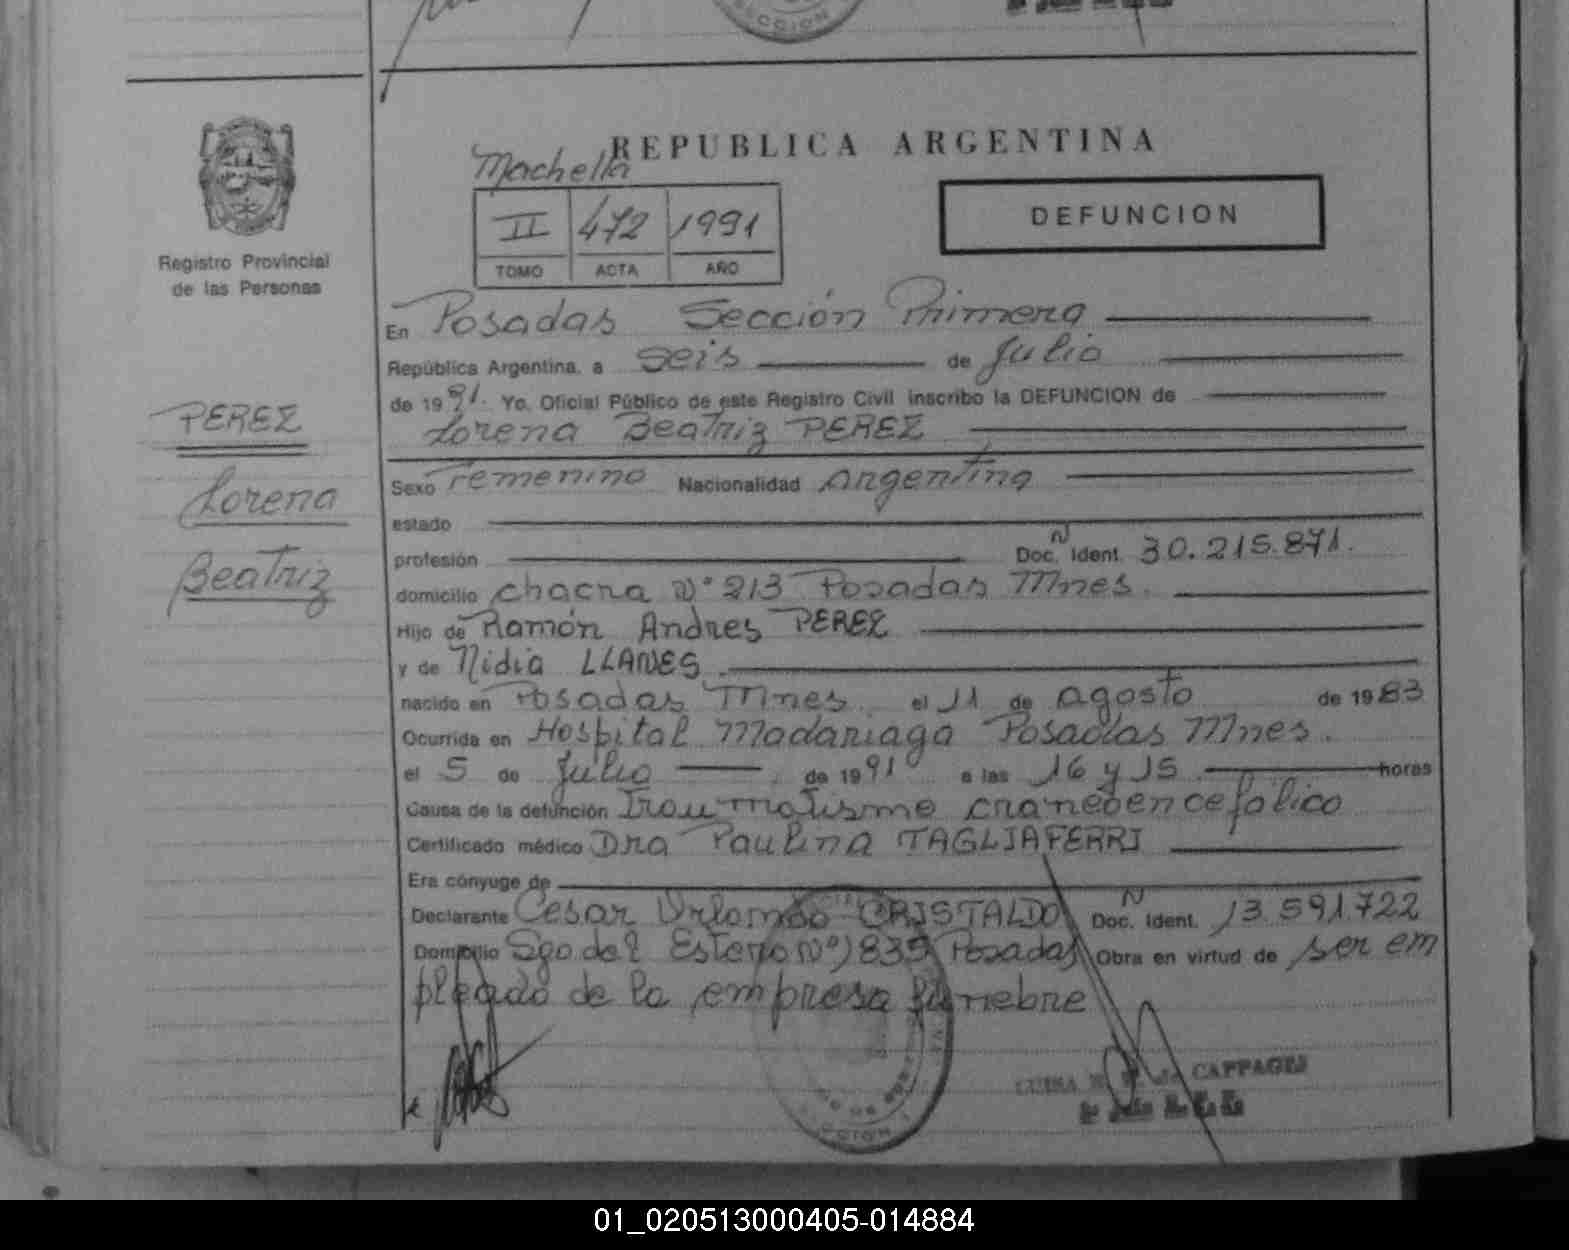 SECCION
REPUBLICA ARGENTINA
Machella
II 472 1991
TOMO ACTA AÑO
DEFUNCION
Registro Provincial
de las Personas
PEREZ
Lorena
Beatriz
En Posadas Sección Primera
República Argentina, a seis de Julio
de 1991. Yo, Oficial Público de este Registro Civil inscribo la DEFUNCION de
Lorena Beatriz PEREZ
Sexo Femenino Nacionalidad Argentina
estado
profesión Doc. N Ident. 30.215.871.
domicilio chacra N° 213 Posadas Mnes.
Hijo de Ramón Andres PEREZ
y de Nidia LLANES
nacido en Posadas Mnes. el 11 de agosto de 1983
Ocurrida en Hospital Madariaga Posadas Mnes.
el 5 de Julio de 1991 a las 16 y 15 horas
Causa de la defunción Traumatismo craneoencefálico
Certificado médico Dra Paulina TAGLIAFERRI
Era cónyuge de
Declarante Cesar Orlando CRISTALDO Doc. N Ident. 13.591.722
Domicilio Sgo del Estero Nº 1835 Posadas Obra en virtud de ser em
pleado de la empresa fúnebre
LUISA CAPPAGLI
01_020513000405-014884